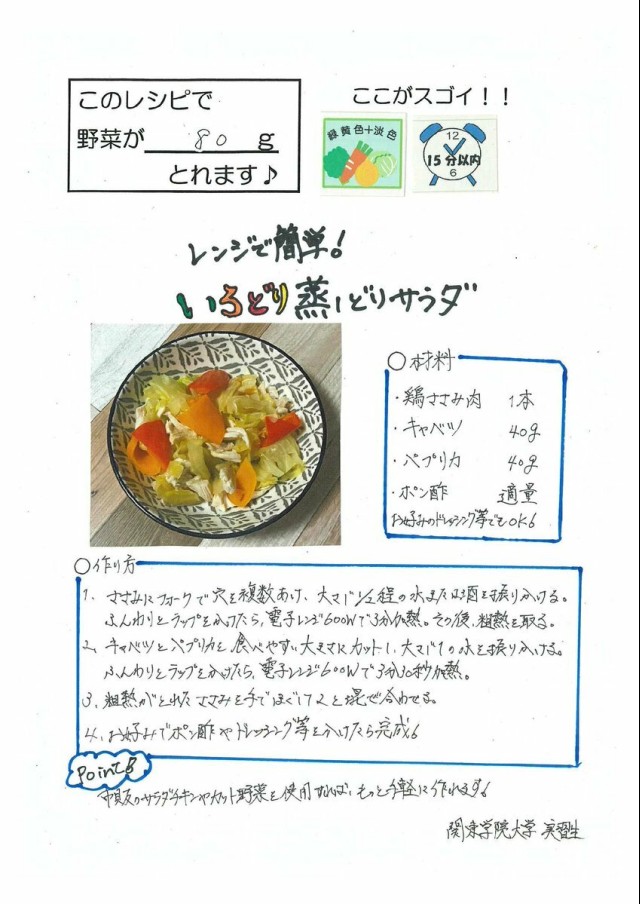 このレシピで
野菜が 80 g
とれます♪
ここがスゴイ！！
緑黄色+淡色
12
15分以内
6
レンジで簡単！
いろどり蒸しどりサラダ
○材料
・鶏ささみ肉 1本
・キャベツ 40g
・パプリカ 40g
・ポン酢 適量
お好みのドレッシング等でもOK!
○作り方
1. ささみにフォークで穴を複数あけ、大さじ1/2程の水または酒を振りかける。
ふんわりとラップをかけたら、電子レンジ600Wで3分加熱。その後、粗熱を取る。
2. キャベツとパプリカを食べやすい大きさにカットし、大さじ1の水を振りかける。
ふんわりとラップをかけたら、電子レンジ600Wで3分30秒加熱。
3. 粗熱がとれたささみを手でほぐして2と混ぜ合わせる。
4. お好みでポン酢やドレッシング等をかけたら完成!
Point!
市販のサラダチキンやカット野菜を使用すれば、もっと手軽に作れます!
関東学院大学 実習生